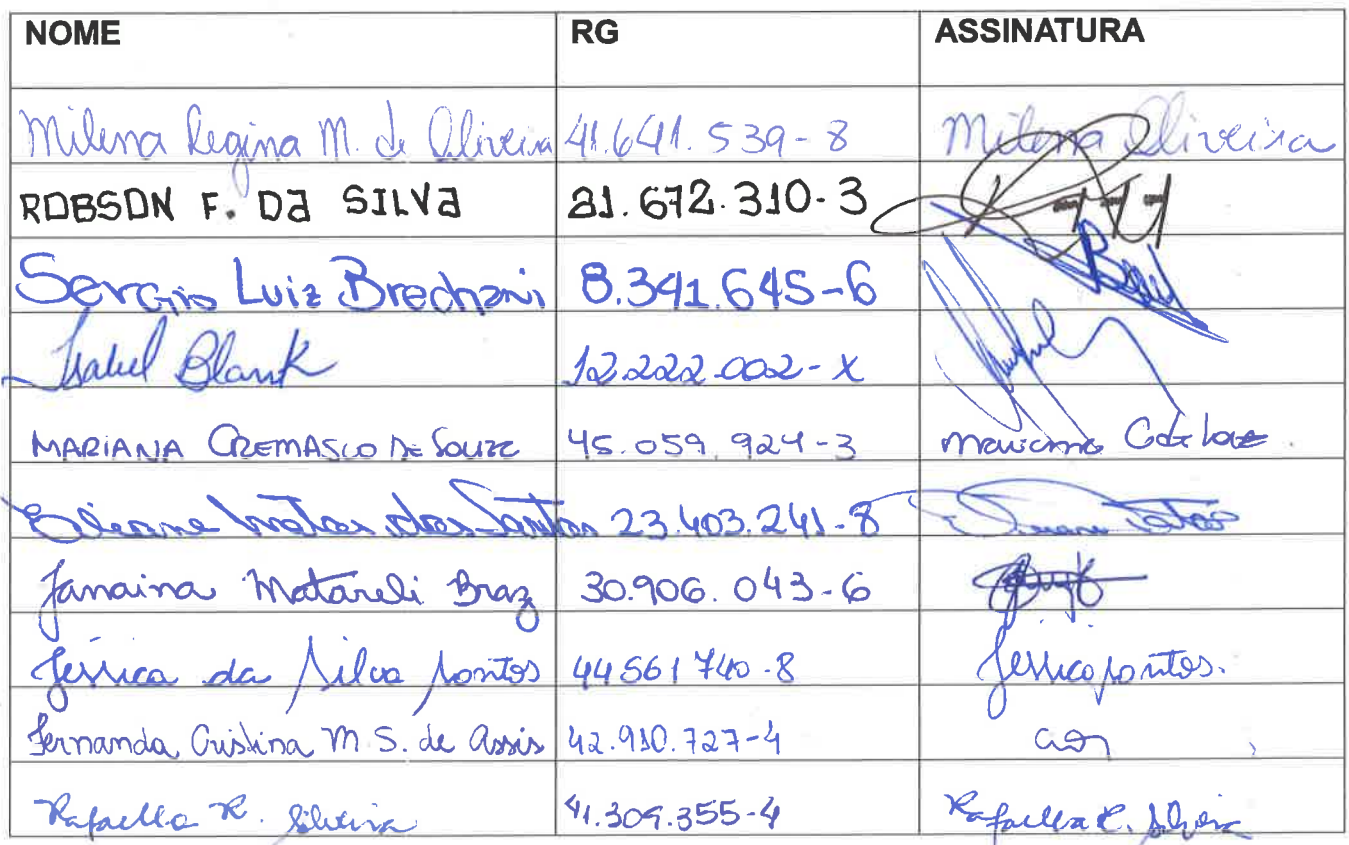 NOME RG ASSINATURA
Milena Regina M. de Oliveira 41.641.539-8 Milena Oliveira
ROBSON F. Da SILVa 21.672.310-3
Sergio Luiz Brechani 8.341.645-6
Isabel Blank 12.222.002-X
MARIANA CREMASCO DE Souza 45.059.924-3 Mariana
Eliane Matos dos Santos 23.403.241-8
Janaina Matareli Braz 30.906.043-6
Jessica da Silva pontos 44561740-8 Jessica pontos.
Fernanda Cristina M S. de Assis 42.910.727-4
Rafaella R. Silveira 41.309.355-4 Rafaella R. Silveira